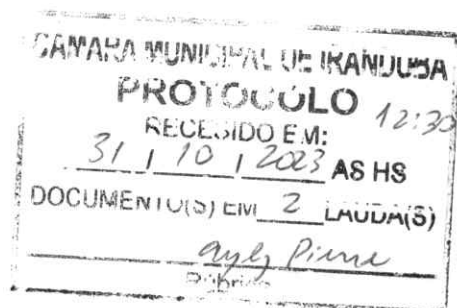 CÂMARA MUNICIPAL DE IRANDUBA
PROTOCOLO 12:30
RECEBIDO EM:
31 / 10 / 2023 AS HS
DOCUMENTO(S) EM 2 LAUDA(S)
Rúbrica